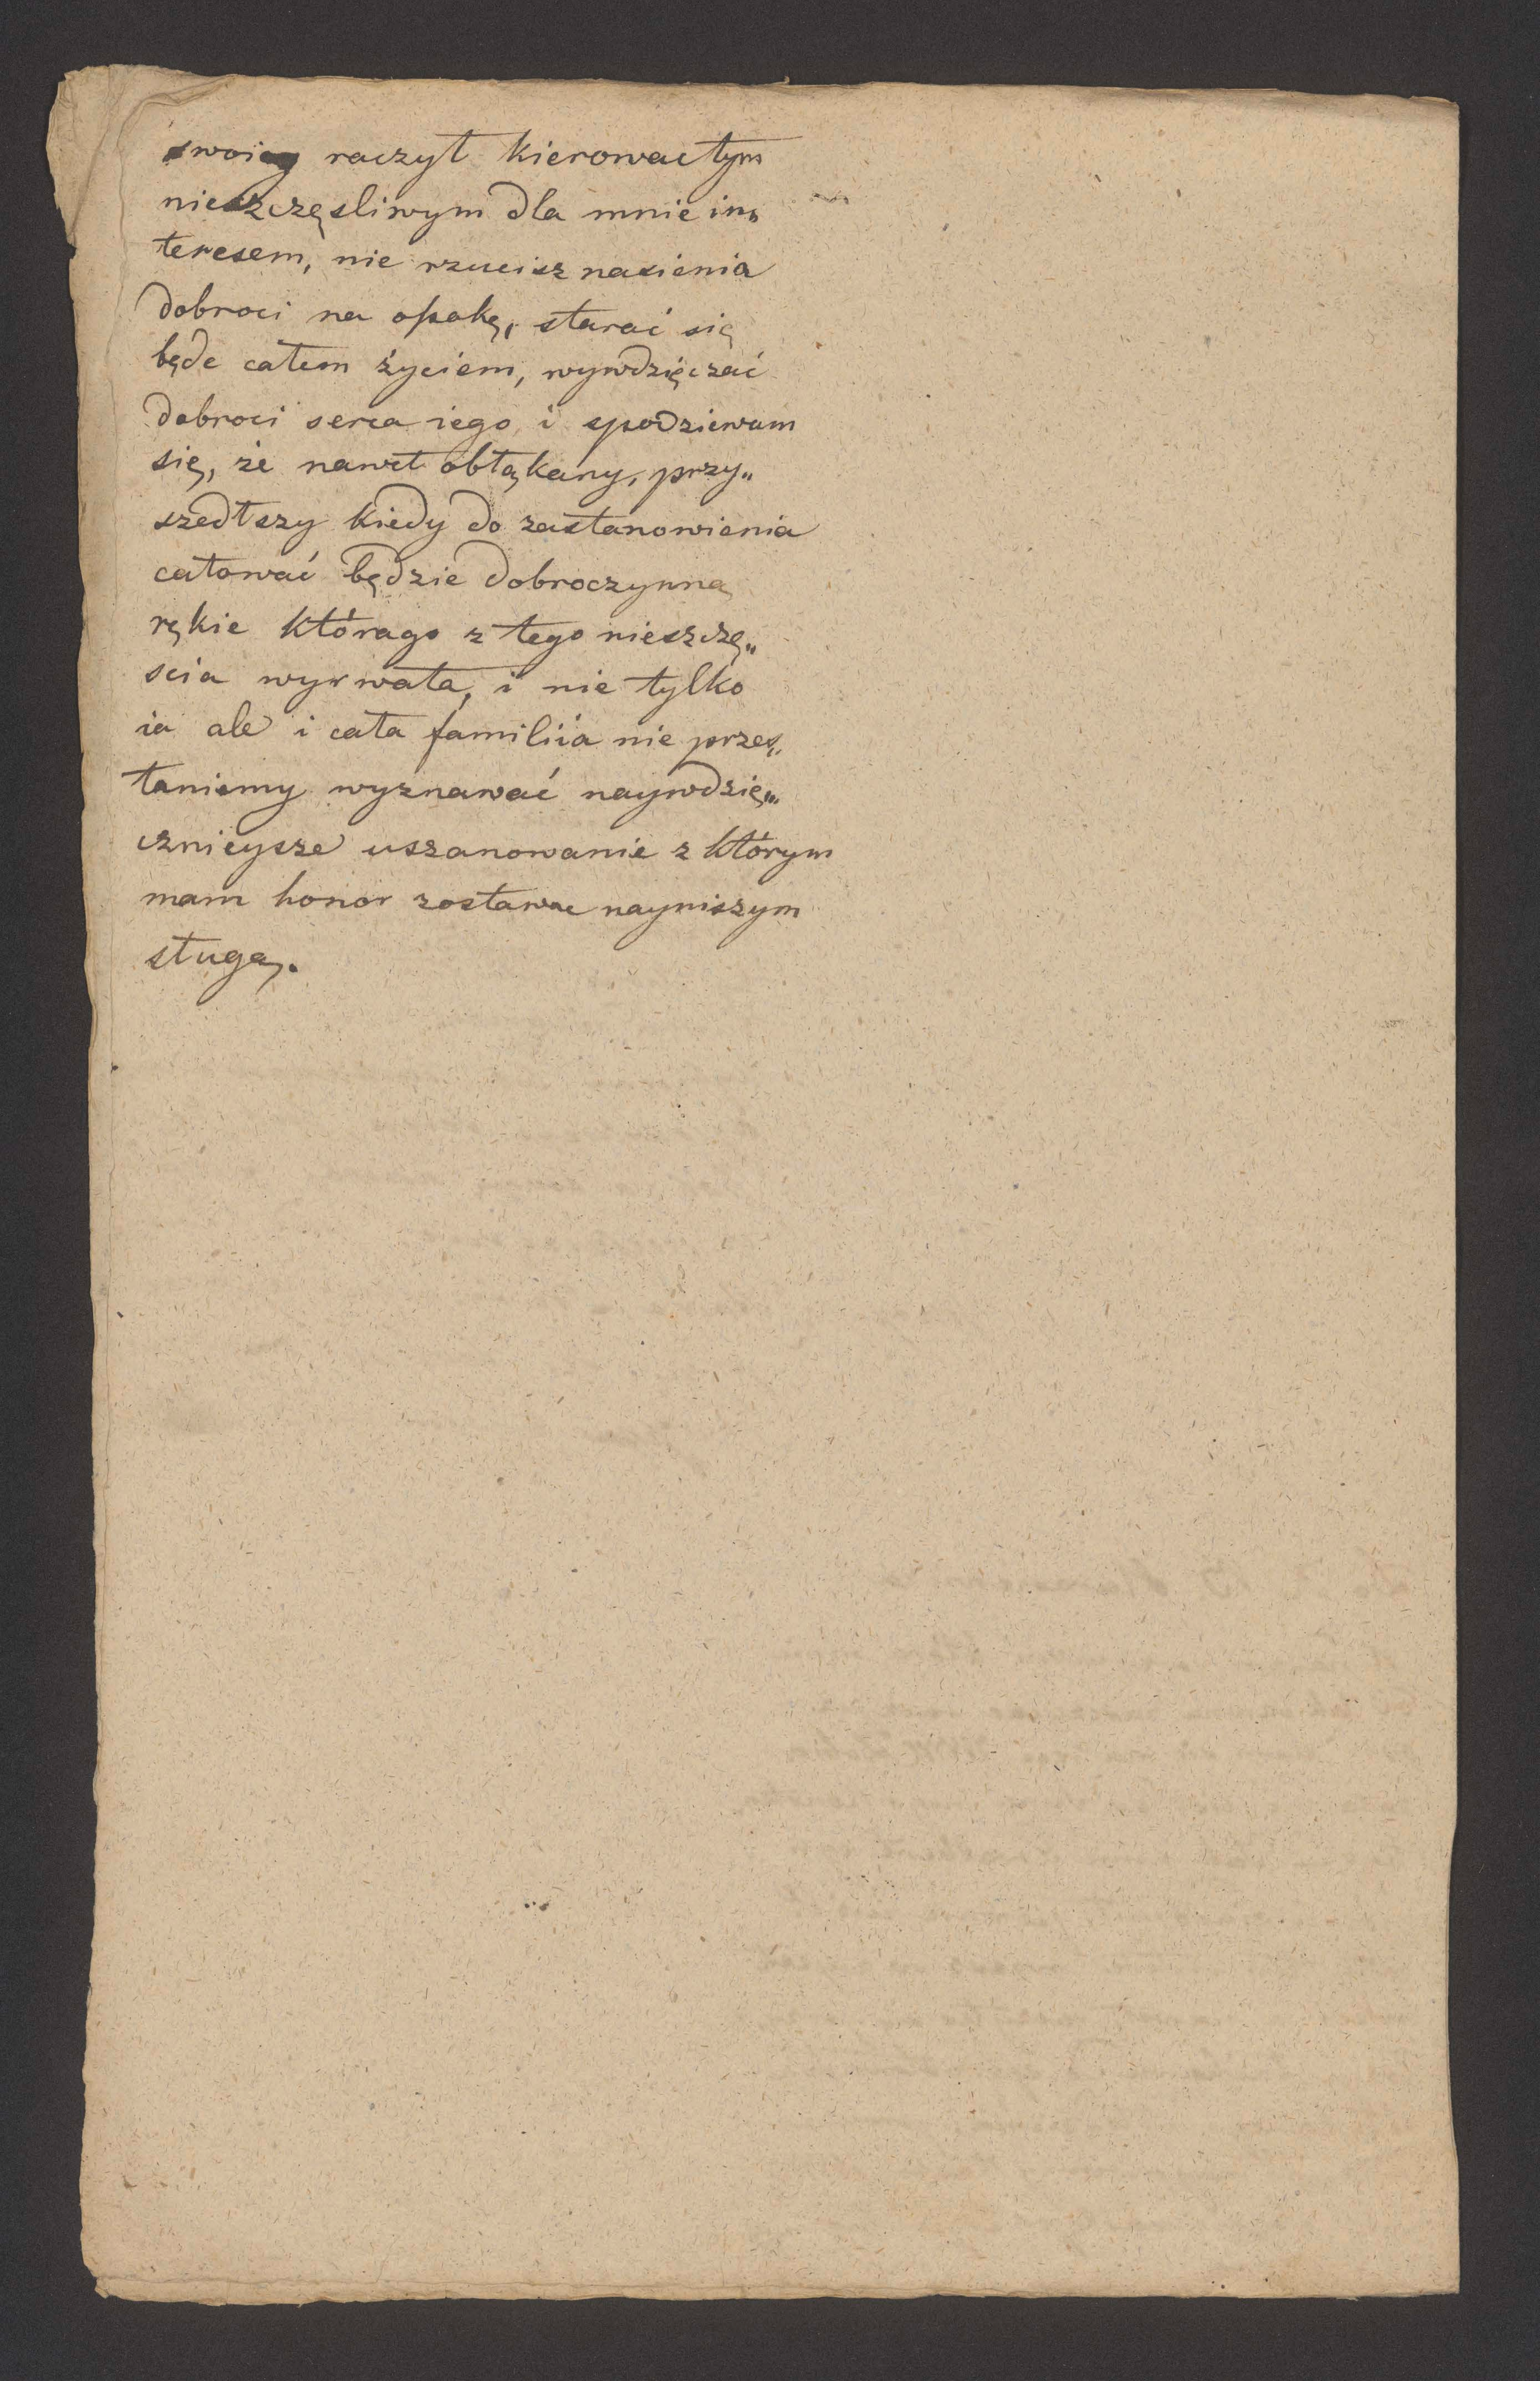 swoią raczył kierować tym
nieszczęsliwym dla mnie in„
teresem, nie rzucisz nasienia
dobroci na opokę, starać się
będe całem życiem, wywdzięczać
dobroci serca iego i spodziewam
się, że nawet obłąkany, przy„
szedłszy kiedy do zastanowienia
całować będzie dobroczynną
rękie którago z tego nieszczę„
scia wyrwała, i nie tylko
ia ale i cała familiia nie przes„
taniemy wyznawać naywdzię„
cznieysze uszanowanie z którym
mam honor zostawac nayniszym
sługą.